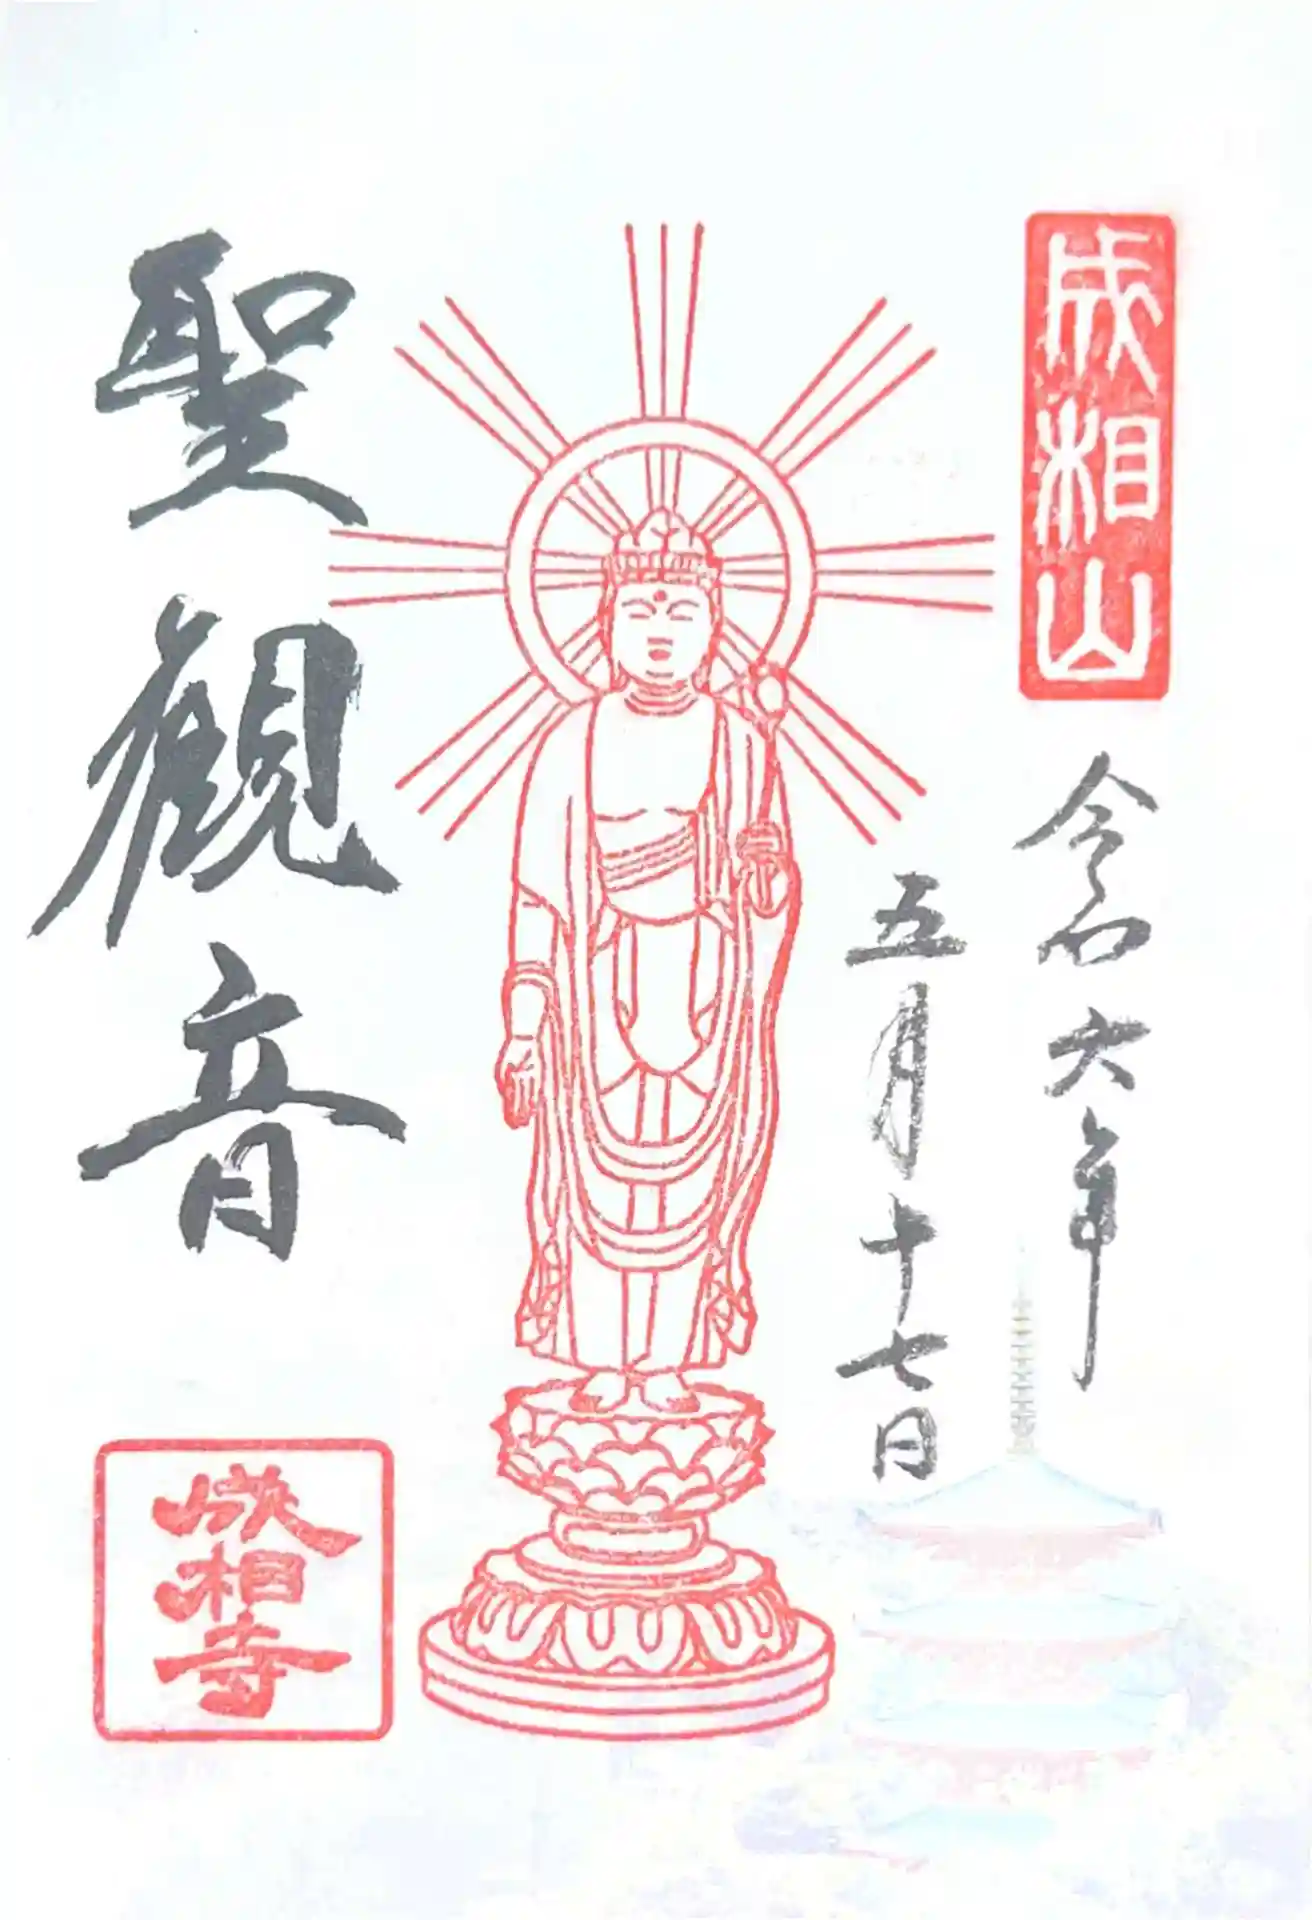 成相山
令和六年
五月十七日
聖観音
成相寺